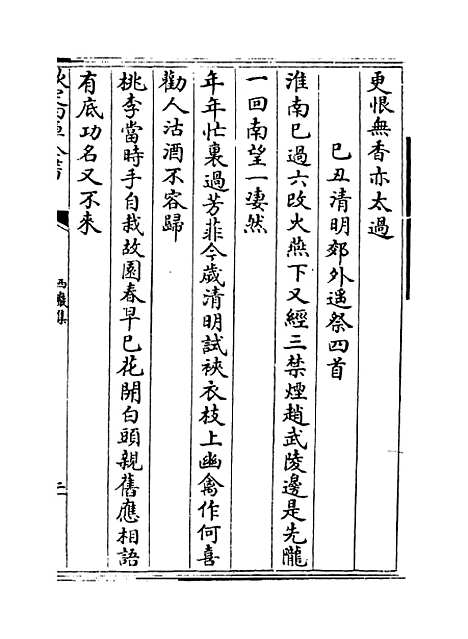 更恨無香亦太過
己丑清明郊外遥祭四首
淮南已過六改火燕下又經三禁煙趙武陵邊是先隴
一回南望一凄然
年年忙裏過芳菲今歲清明試裌衣枝上幽禽作何喜
勸人沽酒不容歸
桃李當時手自栽故園春早已花開白頭親舊應相語
有底功名又不來
西巖集